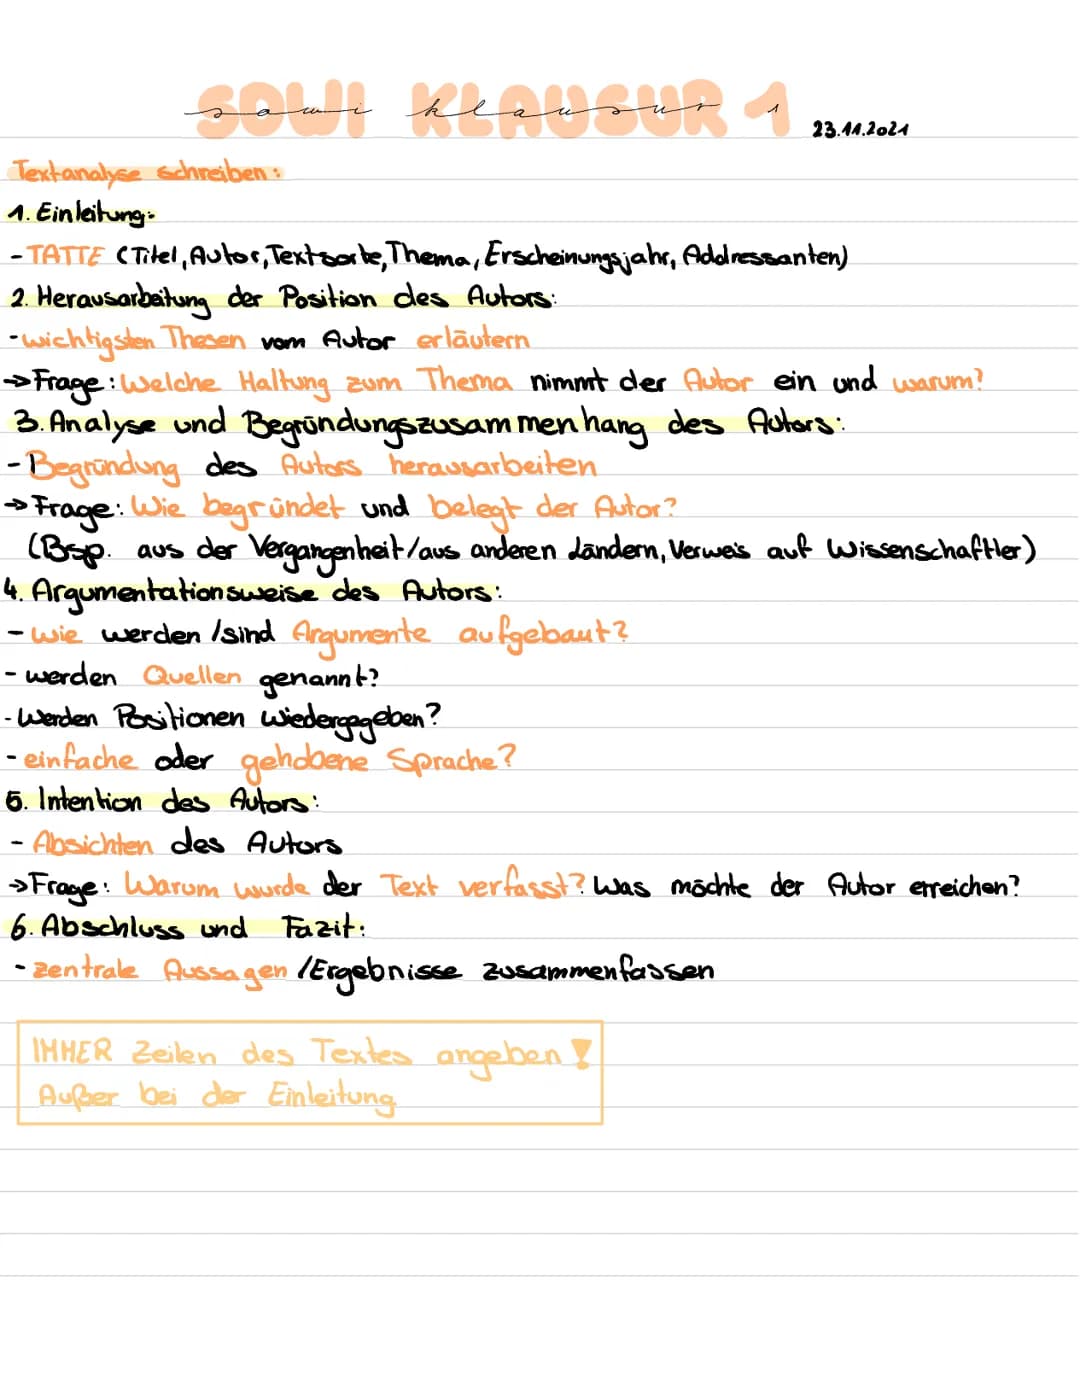 SOWI KLAUSUR 1
sowi klausur 1
23.11.2021
Textanalyse schreiben:
1. Einleitung:
- TATTE (Titel, Autor, Textsorte, Thema, Erscheinungsjahr, Addressanten)
2. Herausarbeitung der Position des Autors:
- wichtigsten Thesen vom Autor erläutern
→ Frage: Welche Haltung zum Thema nimmt der Autor ein und warum?
3. Analyse und Begründungszusammenhang des Autors:
- Begründung des Autors herausarbeiten
→ Frage: Wie begründet und belegt der Autor?
(Bsp. aus der Vergangenheit/aus anderen Ländern, Verweis auf Wissenschaftler)
4. Argumentationsweise des Autors:
- wie werden /sind Argumente aufgebaut?
- werden Quellen genannt?
- Werden Positionen wiedergegeben?
- einfache oder gehobene Sprache?
5. Intention des Autors:
- Absichten des Autors
→ Frage: Warum wurde der Text verfasst? Was möchte der Autor erreichen?
6. Abschluss und Fazit:
- zentrale Aussagen /Ergebnisse zusammenfassen
IMMER Zeilen des Textes angeben!
Außer bei der Einleitung